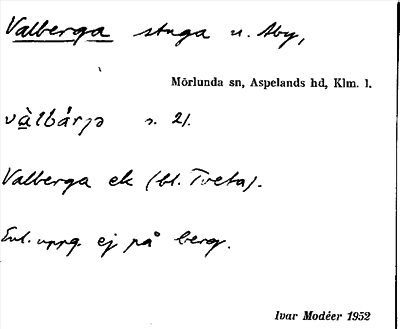 Valberga stuga u. Åby,
Mörlunda sn, Aspelands hd, Klm. l.
vàlbárjə s. 21.
Valberga ek (bl. Tveta).
Enl. uppg. ej på berg.
Ivar Modéer 1952